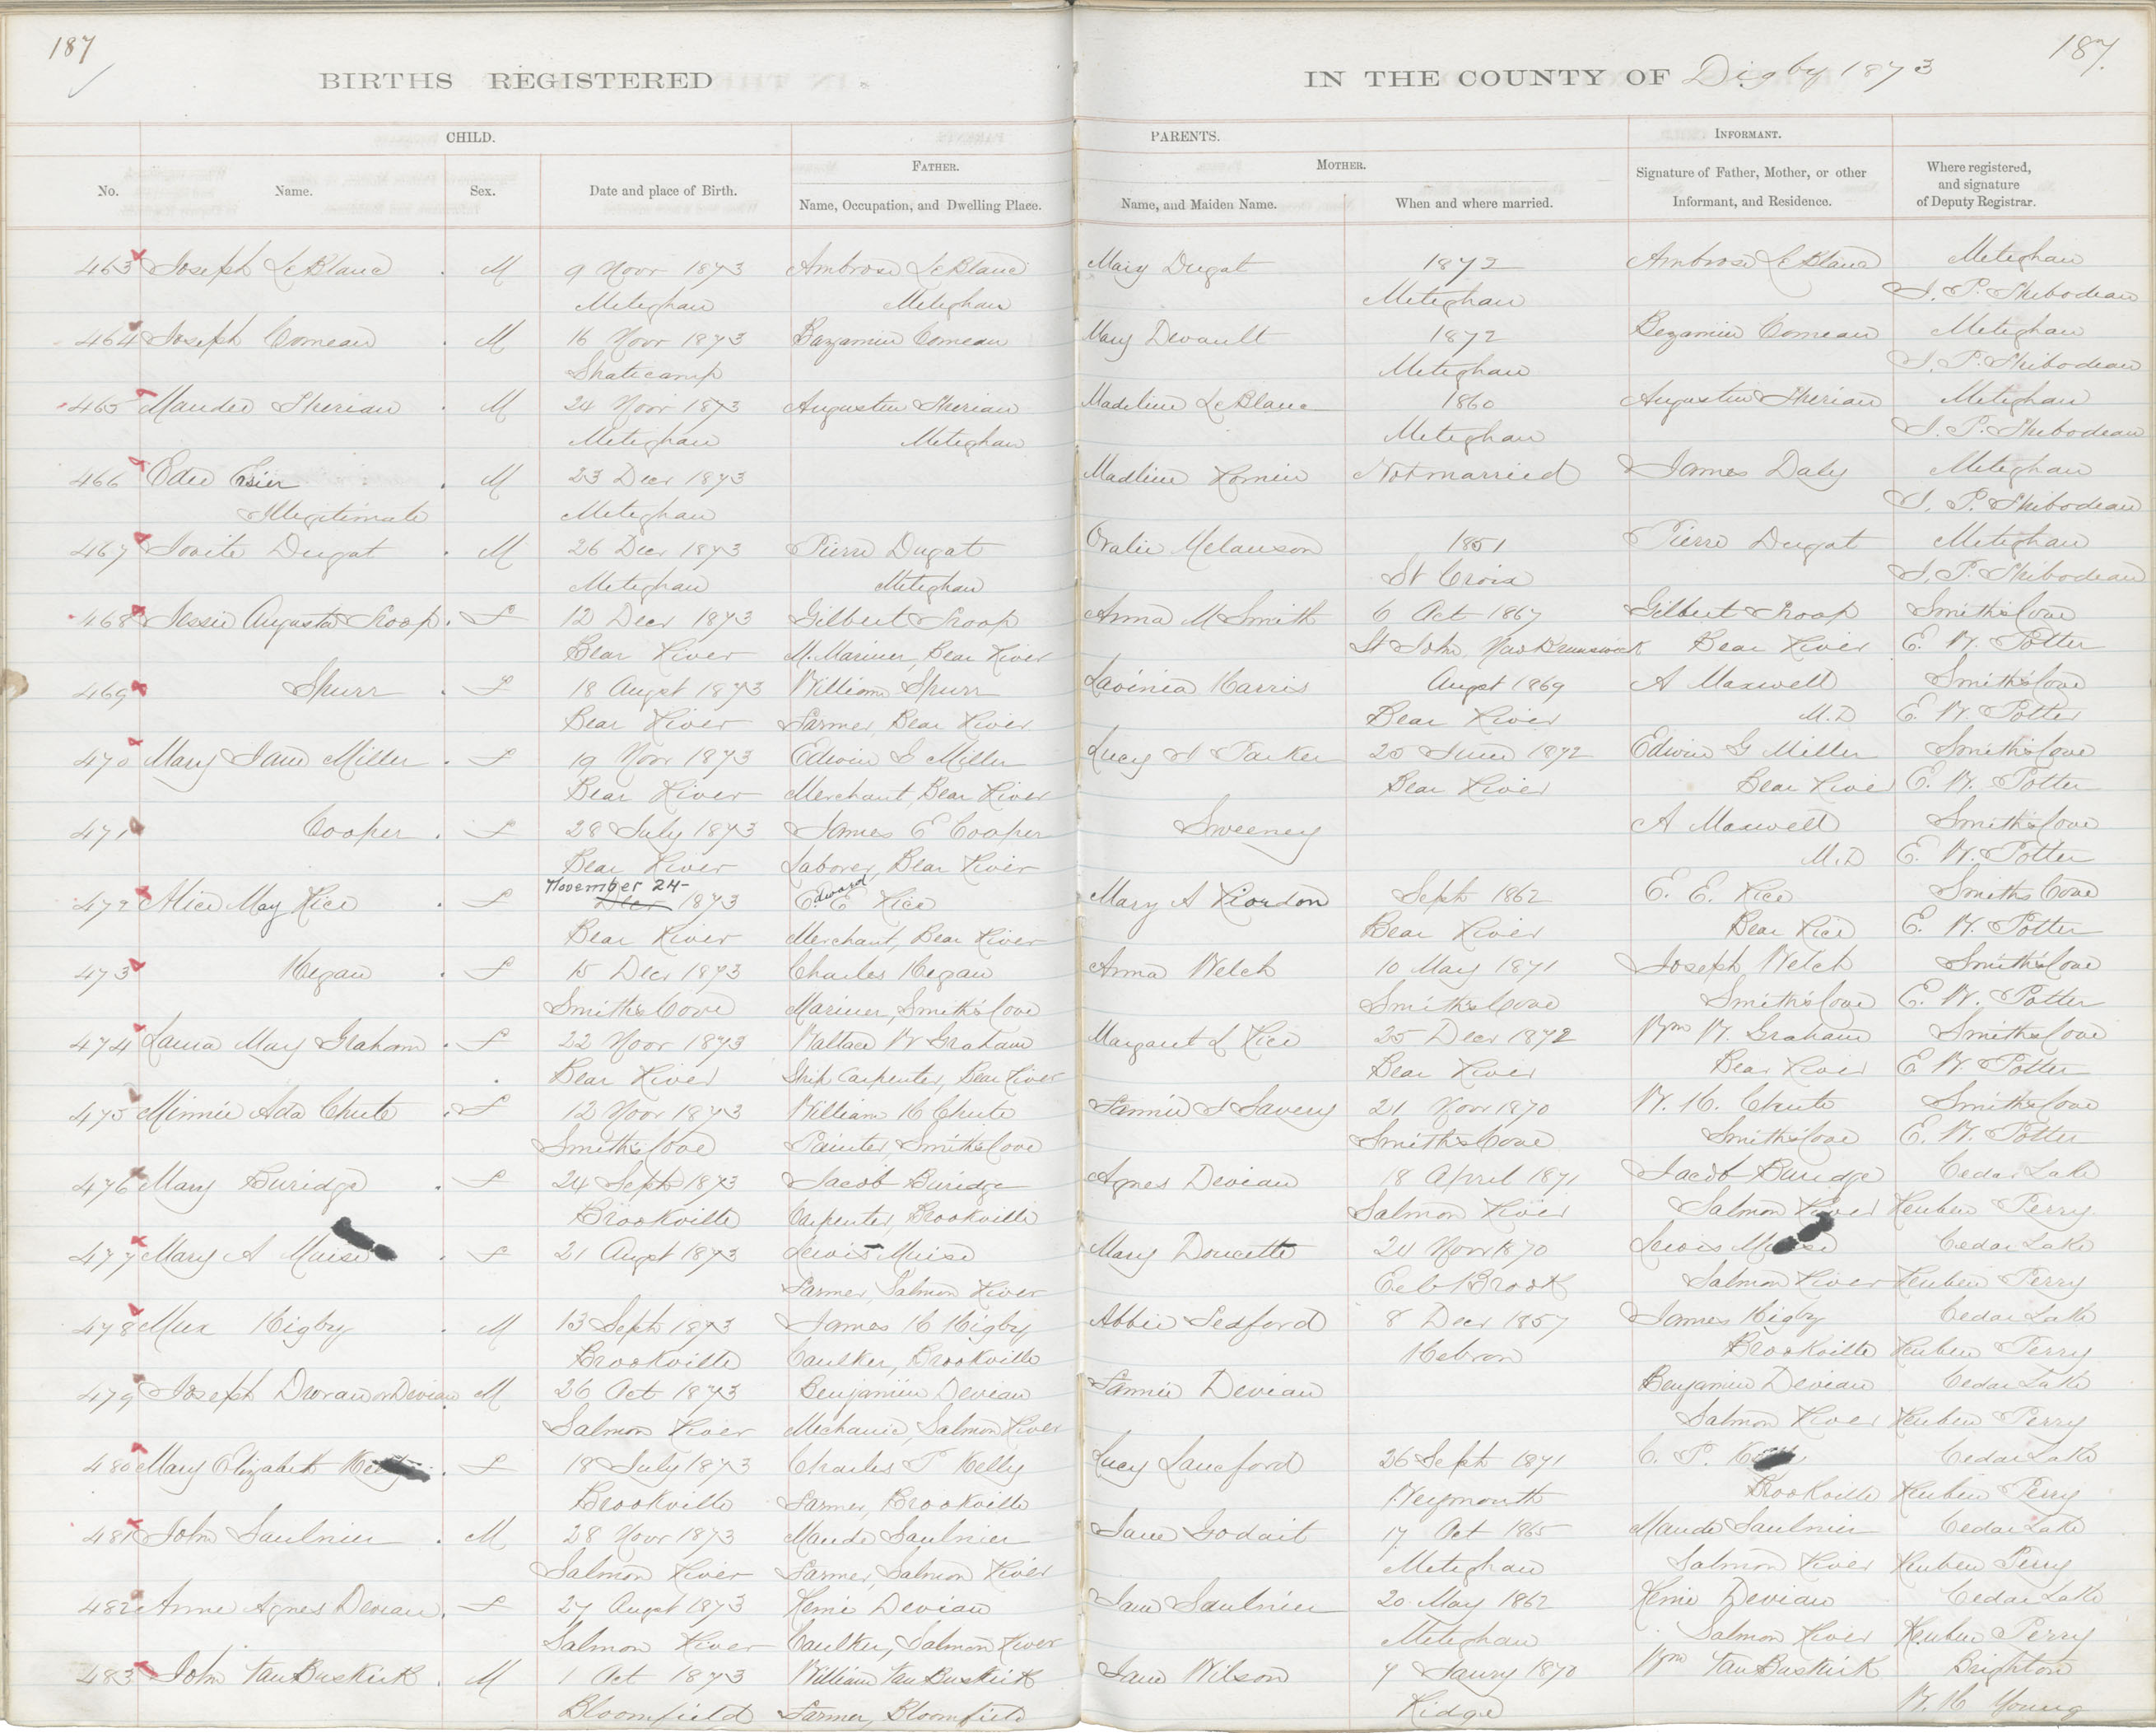 187
187.
BIRTHS REGISTERED
IN THE COUNTY OF Digby 1873
CHILD.
PARENTS.
INFORMANT.
FATHER.
MOTHER.
No.
Name.
Sex.
Date and place of Birth.
Name, Occupation, and Dwelling Place.
Name, and Maiden Name.
When and where married.
Signature of Father, Mother, or other
Informant, and Residence.
Where registered,
and signature
of Deputy Registrar.
463 Joseph LeBlanc M 9 Novr 1873 Ambrose LeBlanc Mary Dugat 1872 Ambrose LeBlanc Meteghan
Meteghan Meteghan Meteghan J. P. Thibodeau
464 Joseph Comeau M 16 Novr 1873 Bazamin Comeau Mary Devault 1872 Bezamin Comeau Meteghan
Skatecamp Meteghan J. P. Thibodeau
465 Mandee Therian M 24 Novr 1873 Augustin Therian Madeline LeBlanc 1860 Augustin Therian Meteghan
Meteghan Meteghan Meteghan J. P. Thibodeau
466 Edee M 23 Decr 1873 Madline Romin Not married James Daly Meteghan
Illegitimate Meteghan J. P. Thibodeau
467 Jovite Dugat M 26 Decr 1873 Pierre Dugat Oralie Melanson 1851 Pierre Dugat Meteghan
Meteghan Meteghan St Croix J. P. Thibodeau
468 Jessie Augusta Troop F 12 Decr 1873 Gilbert Troop Anna M Smith 6 Oct 1867 Gilbert Troop Smith's Cove
Bear River M. Mariner, Bear River St John, New Brunswick Bear River E. W. Potter
469 Spurr F 18 Augst 1873 William Spurr Lavinia Harris Augst 1869 A Maxwell Smith's Cove
Bear River Farmer, Bear River Bear River M.D E. W. Potter
470 Mary Jane Miller F 19 Novr 1873 Edwin G Miller Lucy A Parker 25 June 1872 Edwin G Miller Smith's Cove
Bear River Merchant, Bear River Bear River Bear River E. W. Potter
471 Cooper F 28 July 1873 James E Cooper Sweeney A Maxwell Smith's Cove
Bear River Laborer, Bear River M.D E. W. Potter
November 24- Edward
472 Alice May Rice F Decr 1873 E E Rice Mary A Riordon Sept 1862 E. E. Rice Smiths Cove
Bear River Merchant, Bear River Bear River Bear Rice E. W. Potter
473 Hegan F 15 Decr 1873 Charles Hegan Anna Welch 10 May 1871 Joseph Welch Smith's Cove
Smith's Cove Mariner, Smith's Cove Smith's Cove Smith's Cove E. W. Potter
474 Laura May Graham F 22 Novr 1873 Wallace W Graham Margaret L Rice 25 Decr 1872 Wm W. Graham Smith's Cove
Bear River Ship Carpenter, Bear River Bear River Bear River E W Potter
475 Minnie Ada Chute F 12 Novr 1873 William H Chute Fannie J Savery 21 Novr 1870 W. H. Chute Smith's Cove
Smith's Cove Painter, Smith's Cove Smith's Cove Smith's Cove E. W. Potter
476 Mary Buridge F 24 Septr 1873 Jacob Buridge Agnes Devian 18 April 1871 Jacob Buridge Cedar Lake
Brookville Carpenter, Brookville Salmon River Salmon River Reuben Perry
477 Mary A Muise F 21 Augst 1873 Lewis Muise Mary Doucette 24 Novr 1870 Lewis Muise Cedar Lake
Farmer, Salmon River Eel Brook Salmon River Reuben Perry
478 Mux Higby M 13 Septr 1873 James H Higby Abbie Sedford 8 Decr 1857 James Higby Cedar Lake
Brookville Caulker, Brookville Hebron Brookville Reuben Perry
479 Joseph Devran or Devian M 26 Oct 1873 Benjamin Devian Fannie Devian Benjamin Devian Cedar Lake
Salmon River Mechanic, Salmon River Salmon River Reuben Perry
480 Mary Elizabeth Kelly F 18 July 1873 Charles P Kelly Lucy Lanceford 26 Septr 1871 C. P. Kelly Cedar Lake
Brookville Farmer, Brookville Weymouth Brookville Reuben Perry
481 John Saulnier M 28 Novr 1873 Mande Saulnier Jane Godait 17 Oct 1865 Mande Saulnier Cedar Lake
Salmon River Farmer, Salmon River Meteghan Salmon River Reuben Perry
482 Anne Agnes Devian F 27 Augst 1873 Remi Devian Jane Saulnier 20 May 1862 Remi Devian Cedar Lake
Salmon River Caulker, Salmon River Meteghan Salmon River Reuben Perry
483 John VanBuskirk M 1 Oct 1873 William VanBuskirk Jane Wilson 7 Janry 1870 Wm VanBuskirk Brighton
Bloomfield Farmer, Bloomfield Ridge W. H Young